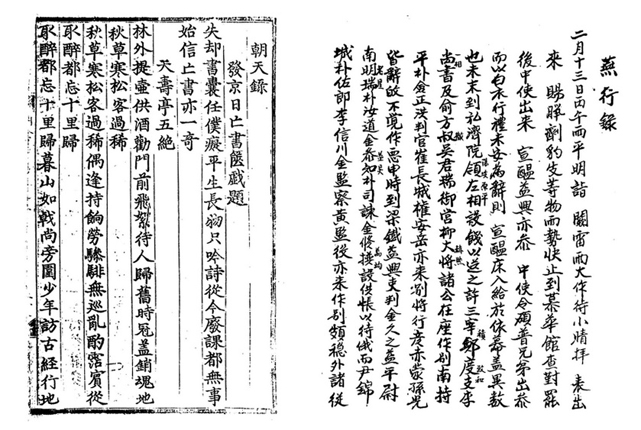 燕行錄
二月十三日丙午雨平明詣 闕雷雨大作待小晴拜 表出
來 賜 劑豹皮等物而勢快止到慕華館查對罷
後中使出來 宣醞益興亦參 中使令碩普兄弟出參
而以白衣行禮未安爲辭則 宣醞床入給於依幕蓋異數
也未末到弘濟院領左相設餞以送之許三宰 鄭度支李
尚書及俞方叔吳君 御官柳大將諸公在座作別南持
平朴金正洪判官崔長城權安岳亦來別將行彥亦 孫兒
皆辭故不 作惡申時到梁鐵益興吏判金久之益平尉
南明瑞朴汝道金泰如朴司諫金修撰設供帳以待俄而尹錦
城朴佐郎李信川金監察黃監役亦來作別頗穩外諸從
朝天錄
發京日亡書篋戲題
失却書囊任僕癡平生長物只吟詩從今廢課都無事
始信亡書亦一奇
天壽亭五絶
林外提壺供酒勸門前飛絮待人歸舊時冠蓋銷魂地
秋草寒松客過稀
秋草寒松客過稀偶逢持餉勞驂騑無巡亂酌 賓從
取醉都忘十里歸
取醉都忘十里歸暮山如戟尚旁圍少年訪古經行地